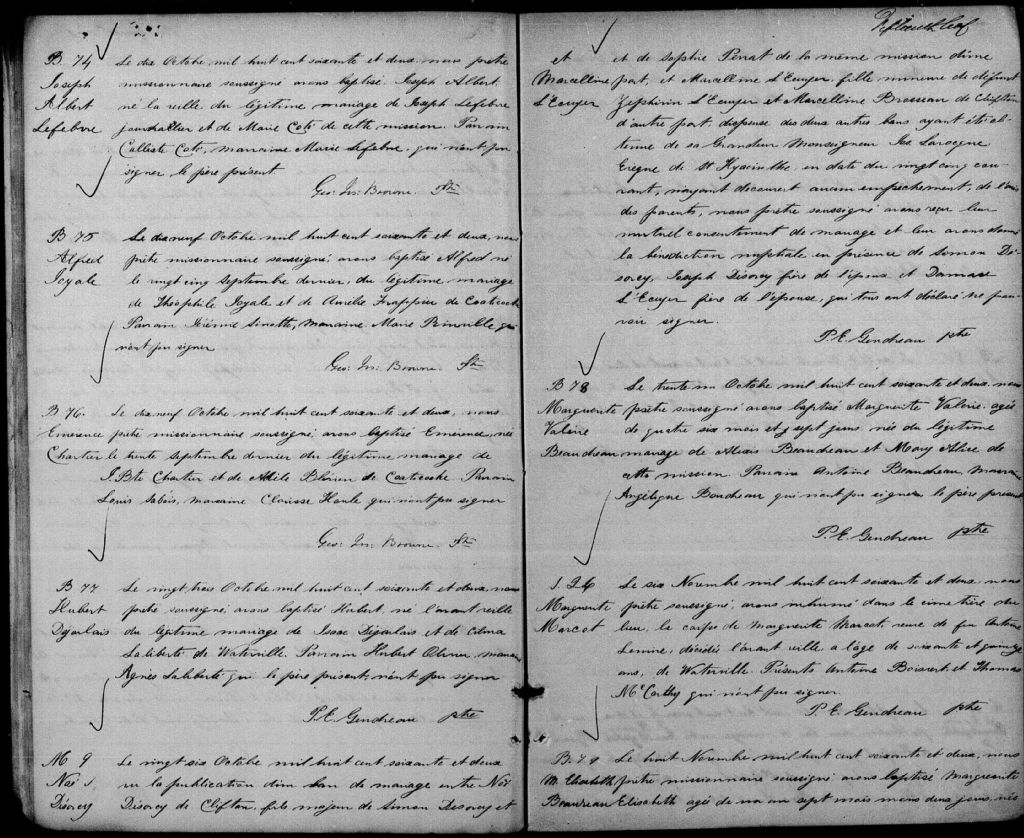 B 74
Joseph
Albert
Lefebvre
Le dix Octobre mil huit cent soixante et deux, nous prêtre
missionnaire soussigné avons baptisé Joseph Albert
né la veille du légitime mariage de Joseph Lefebvre
journallier et de Marie Coté de cette mission. Parrain
Calliste Coté, marraine Marie Lefebvre, qui n'ont pu
signer le père présent
Geo: Jn: Browne Ptre
B 75
Alfred
Joyale
Le dix neuf Octobre mil huit cent soixante et deux, nous
prêtre missionnaire soussigné, avons baptisé Alfred né
le vingt cinq Septembre dernier, du légitime mariage
de Théophile Joyale et de Amélie Frappier de Coaticook
Parrain Jérémie, marraine Marie qui
n'ont pu signer
Geo: Jn: Browne Ptre
B 76.
Emerence
Chartier
Le dix neuf Octobre mil huit cent soixante et deux, nous
prêtre missionnaire soussigné avons baptisé Emerence, née
le trente Septembre dernier du légitime mariage de
J. Bte Chartier et de Adèle de Coaticook. Parrain
Louis, marraine Clarisse Houle qui n'ont pu signer
Geo: Jn: Browne Ptre
B 77
Hubert
Déjarlais
Le vingt trois Octobre mil huit cent soixante et deux, nous
prêtre soussigné, avons baptisé Hubert, né l'avant veille
du légitime mariage de Isaac Déjarlais et de
Laliberté de Waterville. Parrain Hubert Olivier, marraine
Agnès Laliberté qui le père présent, n'ont pu signer
P. E. Gendreau ptre
M 9
Noé
Désorcy
Le vingt-six Octobre mil huit cent soixante et deux
vu la publication d'un ban de mariage entre Noé
Désorcy de Clifton, fils majeur de Simon Desorcy et
et
Marcelline
L'Ecuyer
et de Sophie de la même mission d'une
part, et Marcelline L'Ecuyer, fille mineure de défunt
Zéphirin L'Ecuyer et Marcelline Brosseau de Clifton
d'autre part, dispense des deux autres bans ayant été ob-
tenue de sa Grandeur Monseigneur Jos Larocque
Evêque de St Hyacinthe, en date du vingt cinq cou-
rant, n'ayant découvert aucun empêchement, de l'avis
des parents, nous prêtre soussigné avons reçu leur
mutuel consentement de mariage et leur avons donné
la bénédiction nuptiale en présence de Simon Dé-
sorcy, Joseph Désorcy frère de l'époux et Damase
L'Ecuyer frère de l'épouse, qui tous ont déclaré ne pou-
voir signer.
P. E. Gendreau ptre
B 78
Marguerite
Valérie
Beaudreau
Le trente un Octobre mil huit cent soixante et deux, nous
prêtre soussigné avons baptisé Marguerite Valérie, agée
de quatre six mois et sept jours née du légitime
mariage de Alexis Beaudreau et Mary Alice de
cette mission Parrain Antoine Beaudreau, marraine
Angélique Boudreau qui n'ont pu signer, le père présent
P. E. Gendreau ptre
Marguerite
Marcot
Le six Novembre mil huit cent soixante et deux, nous
prêtre soussigné, avons inhumé dans le cimetière du
lieu, le corps de Marguerite Marcot, veuve de feu Antoine
Lemire, décédée l'avant veille, à l'âge de soixante et quinze
ans, de Waterville. Présents Antoine Boisvert et Thomas
McCarthy qui n'ont pu signer.
P. E. Gendreau ptre
B. 79
M. Elisabeth
Beaudreau
Le huit Novembre mil huit cent soixante et deux, nous
prêtre missionnaire soussigné avons baptisé Marguerite
Elisabeth agée de un an sept mois moins deux jours, née